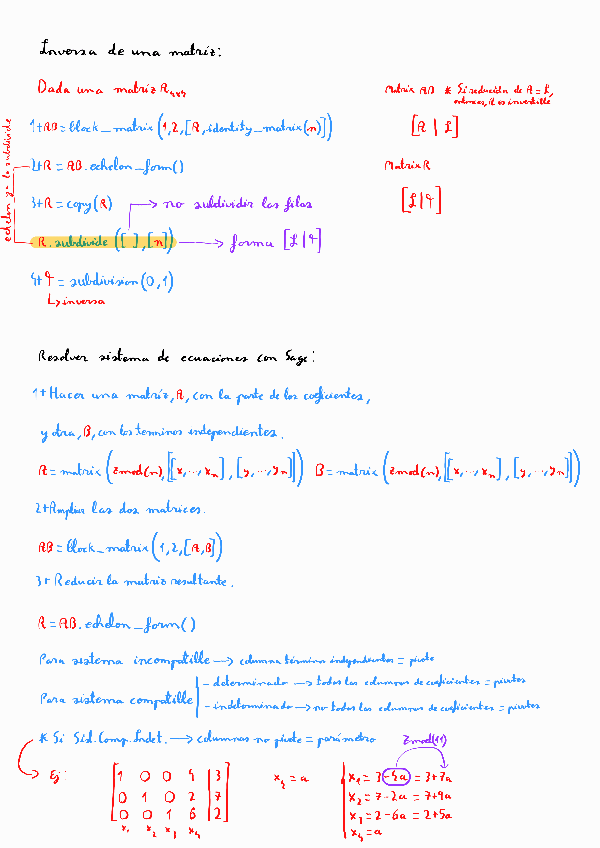 Inversa de una matriz:
Dada una matriz A4x4
Matriz AB * Si reducida de A = I, entonces, A es invertible
1→AB = block_matrix(1,2,[A, identity_matrix(n)])
[A | I]
2→R = AB.echelon_form()
Matriz R
3→R = copy(R) → no subdividir las filas
[I | P]
R.subdivide([ ],[n]) → forma [I | P]
echelon ya lo subdivide
4→P = subdivision(0,1)
↳ inversa
Resolver sistema de ecuaciones con Sage:
1→Hacer una matriz, A, con la parte de los coeficientes,
y otra, B, con los terminos independientes.
A = matrix(Zmod(n),[[x,...,xn],[y,...,yn]]) B = matrix(Zmod(n),[[x,...,xn],[y,...,yn]])
2→Ampliar las dos matrices.
AB = block_matrix(1,2,[A,B])
3→Reducir la matriz resultante.
R = AB.echelon_form()
Para sistema incompatible → columna término independientes = pivote
Para sistema compatible
- determinado → todas las columnas de coeficientes = pivotes
- indeterminado → no todas las columnas de coeficientes = pivotes
* Si Sist.Comp.Indet. → columnas no pivote = parámetro
Zmod(11)
Ej:
1 0 0 4 | 3
0 1 0 2 | 7
0 0 1 6 | 2
x1 x2 x3 x4
x4 = a
x1 = 3-4a = 3+7a
x2 = 7-2a = 7+9a
x3 = 2-6a = 2+5a
x4 = a